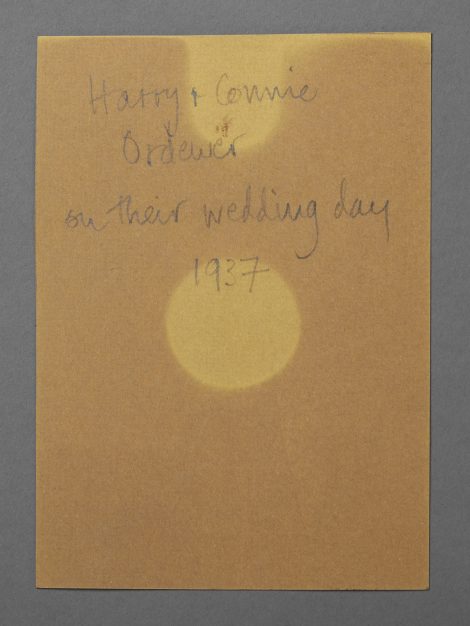 Harry + Connie
Ordever
on their wedding day
1937